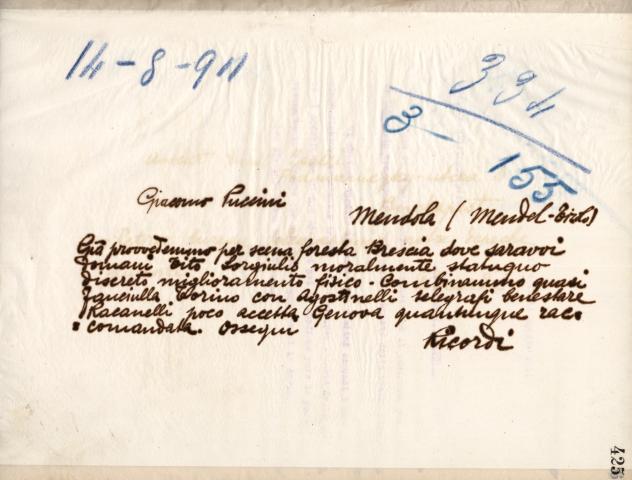 14-8-911
334
3- 155
Giacomo Puccini
Mendola (Mendel-Tirolo)
Già provvedemmo per scena foresta Brescia dove saravoi
domani Tito Sorgiulio moralmente statuquo
discreto miglioramento fisico - Combinammo quasi
fanciulla Torino con Agostinelli telegrafi benestare
Racanelli poco accetta Genova quantunque rac=
=comandata. Ossequi
Ricordi
425